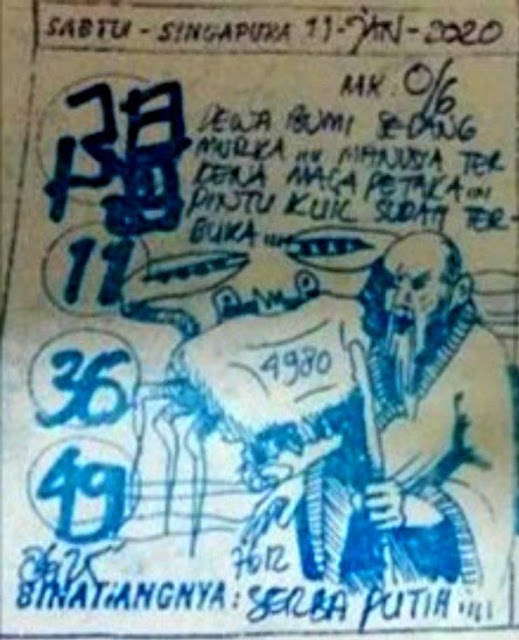 SABTU - SINGAPURA 11-JAN-2020
MK. 0/6
DEWA BUMI SEDANG
MURKA .... MANUSIA TER
KENA MALA PETAKA ....
PINTU KUIL SUDAH TER-
BUKA ....
11
4980
36
49
7612
BINATANGNYA : SERBA PUTIH ....